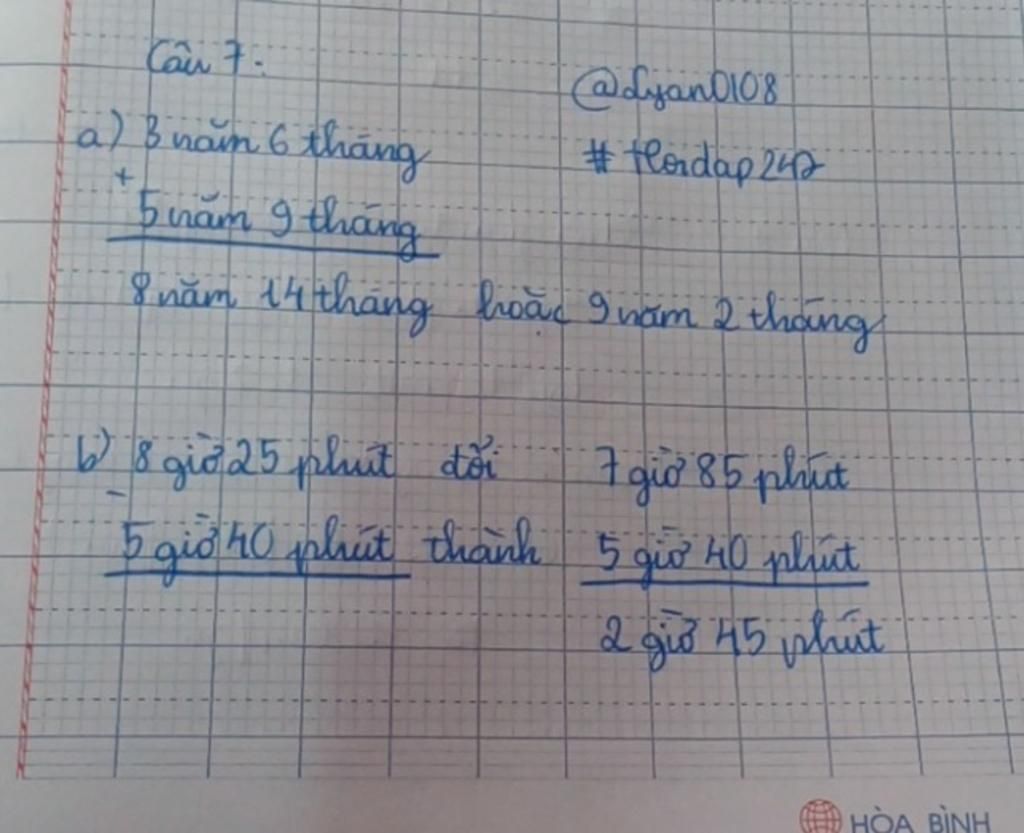 Câu 7:
@dyan0108
a) 3 năm 6 tháng
#
+
5 năm 9 tháng
8 năm 14 tháng hoặc 9 năm 2 tháng
b) 8 giờ 25 phút đổi 7 giờ 85 phút
-
5 giờ 40 phút thành 5 giờ 40 phút
2 giờ 45 phút
HÒA BÌNH